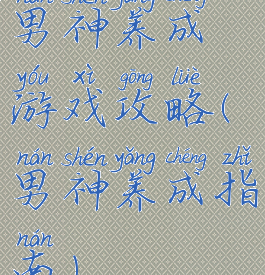 nán shén yǎng chéng
男神养成
yóu xì gōng lüè
游戏攻略(
nán shén yǎng chéng zhǐ
男神养成指
nán
南)